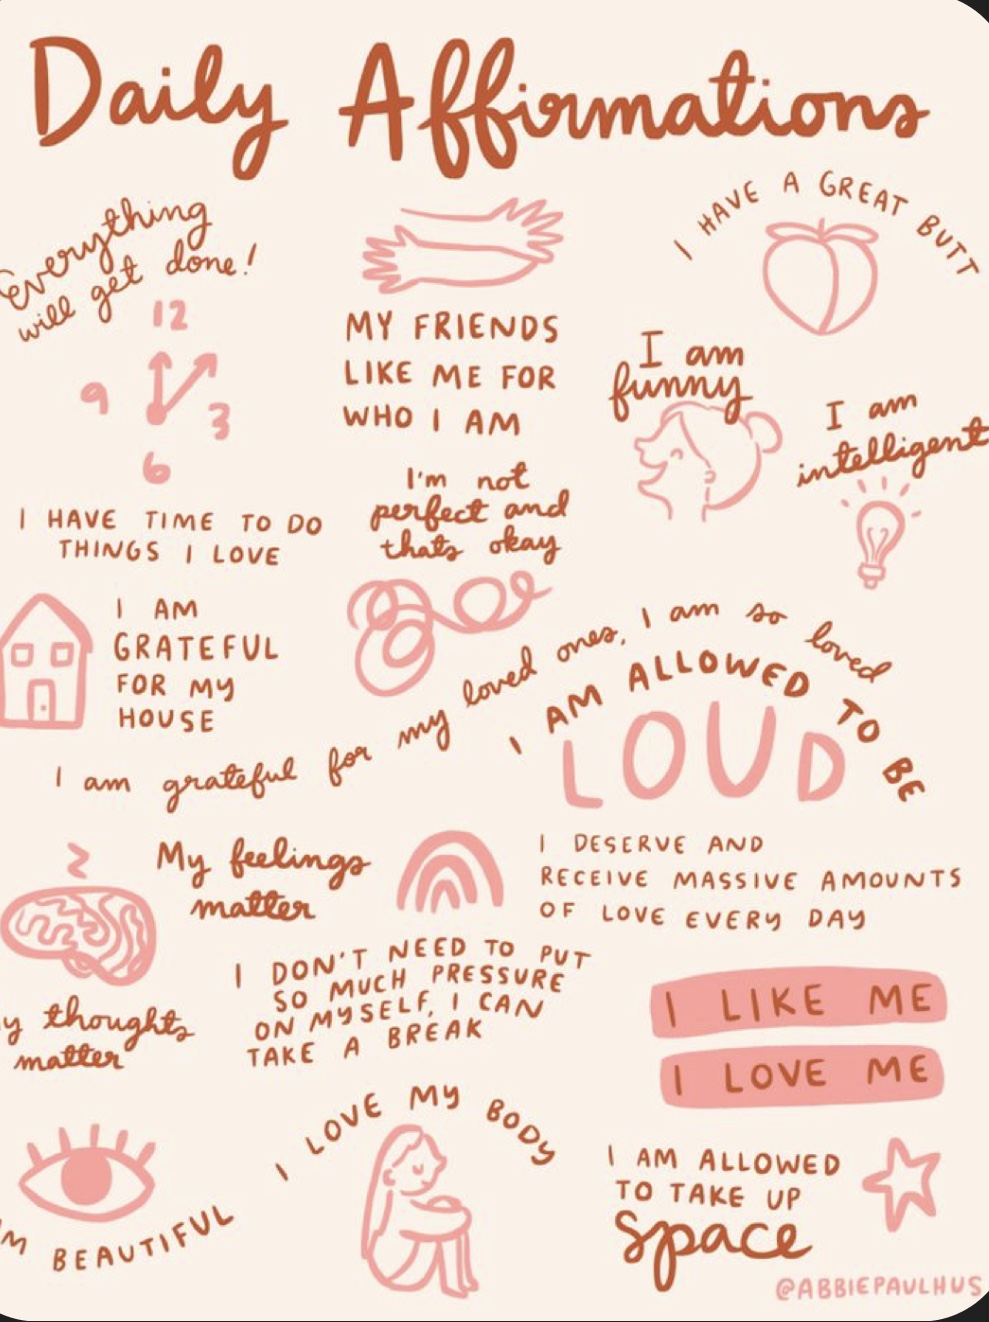 Daily Affirmations
Everything
will get done!
12
9
3
6
MY FRIENDS
LIKE ME FOR
WHO I AM
I HAVE A GREAT BUTT
I am
funny
I am
intelligent
I HAVE TIME TO DO
THINGS I LOVE
I'm not
perfect and
thats okay
I AM
GRATEFUL
FOR MY
HOUSE
I am grateful for my loved ones, I am so loved
I AM ALLOWED TO BE
LOUD
My feelings
matter
I DESERVE AND
RECEIVE MASSIVE AMOUNTS
OF LOVE EVERY DAY
y thoughts
matter
I DON'T NEED TO PUT
SO MUCH PRESSURE
ON MYSELF, I CAN
TAKE A BREAK
I LIKE ME
I LOVE ME
M BEAUTIFUL
I LOVE MY BODY
I AM ALLOWED
TO TAKE UP
space
@ABBIEPAULHUS